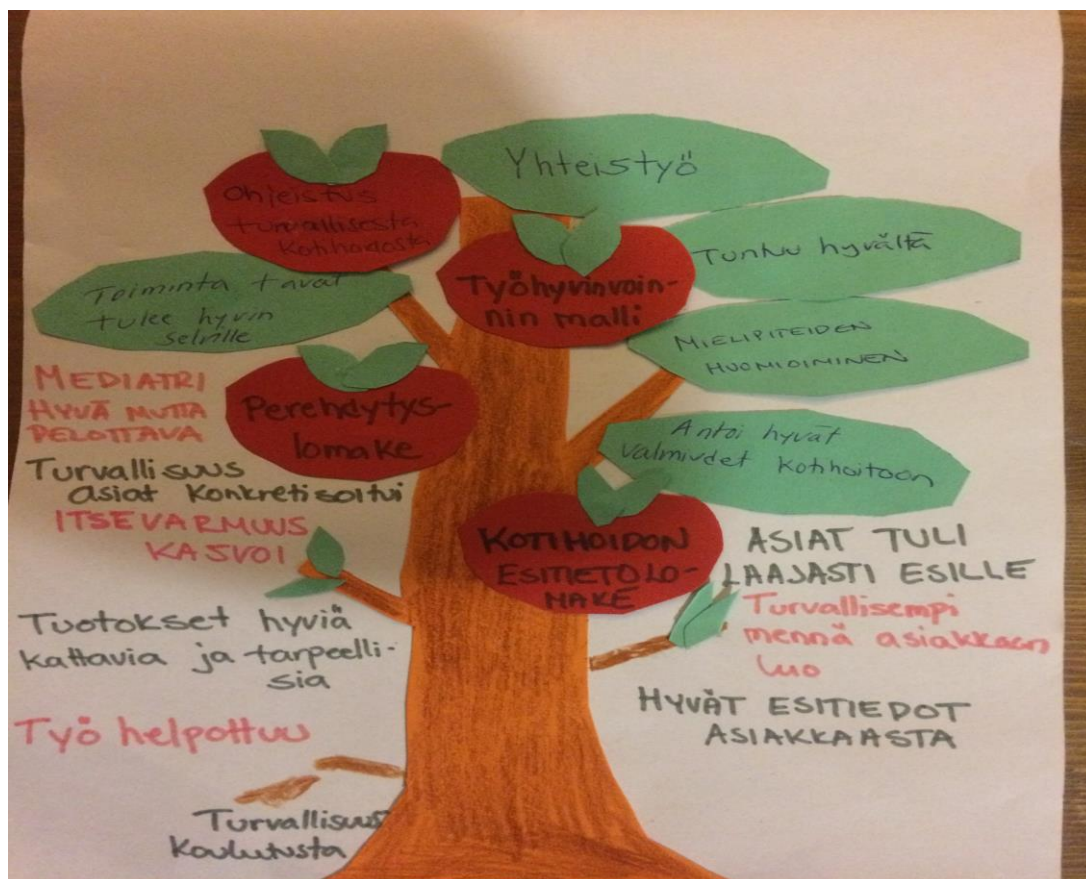 Yhteistyö
Ohjeistus
turvallisesta
kotihoidosta
Tuntuu hyvältä
Toiminta tavat
tulee hyvin
selville
Työhyvinvoin-
nin malli
MIELIPITEIDEN
HUOMIOIMINEN
MEDIATRI
HYVÄ MUTTA
PELOTTAVA
Perehdytys-
lomake
Antoi hyvät
valmiudet kotihoitoon
Turvallisuus
asiat konkretisoitui
ITSEVARMUUS
KASVOI
KOTIHOIDON
ESITIETOLO-
MAKE
ASIAT TULI
LAAJASTI ESILLE
Turvallisempi
mennä asiakkaan
luo
Tuotokset hyviä
kattavia ja tarpeelli-
sia
HYVÄT ESITIEDOT
ASIAKKAASTA
Työ helpottuu
Turvallisuus
koulutusta